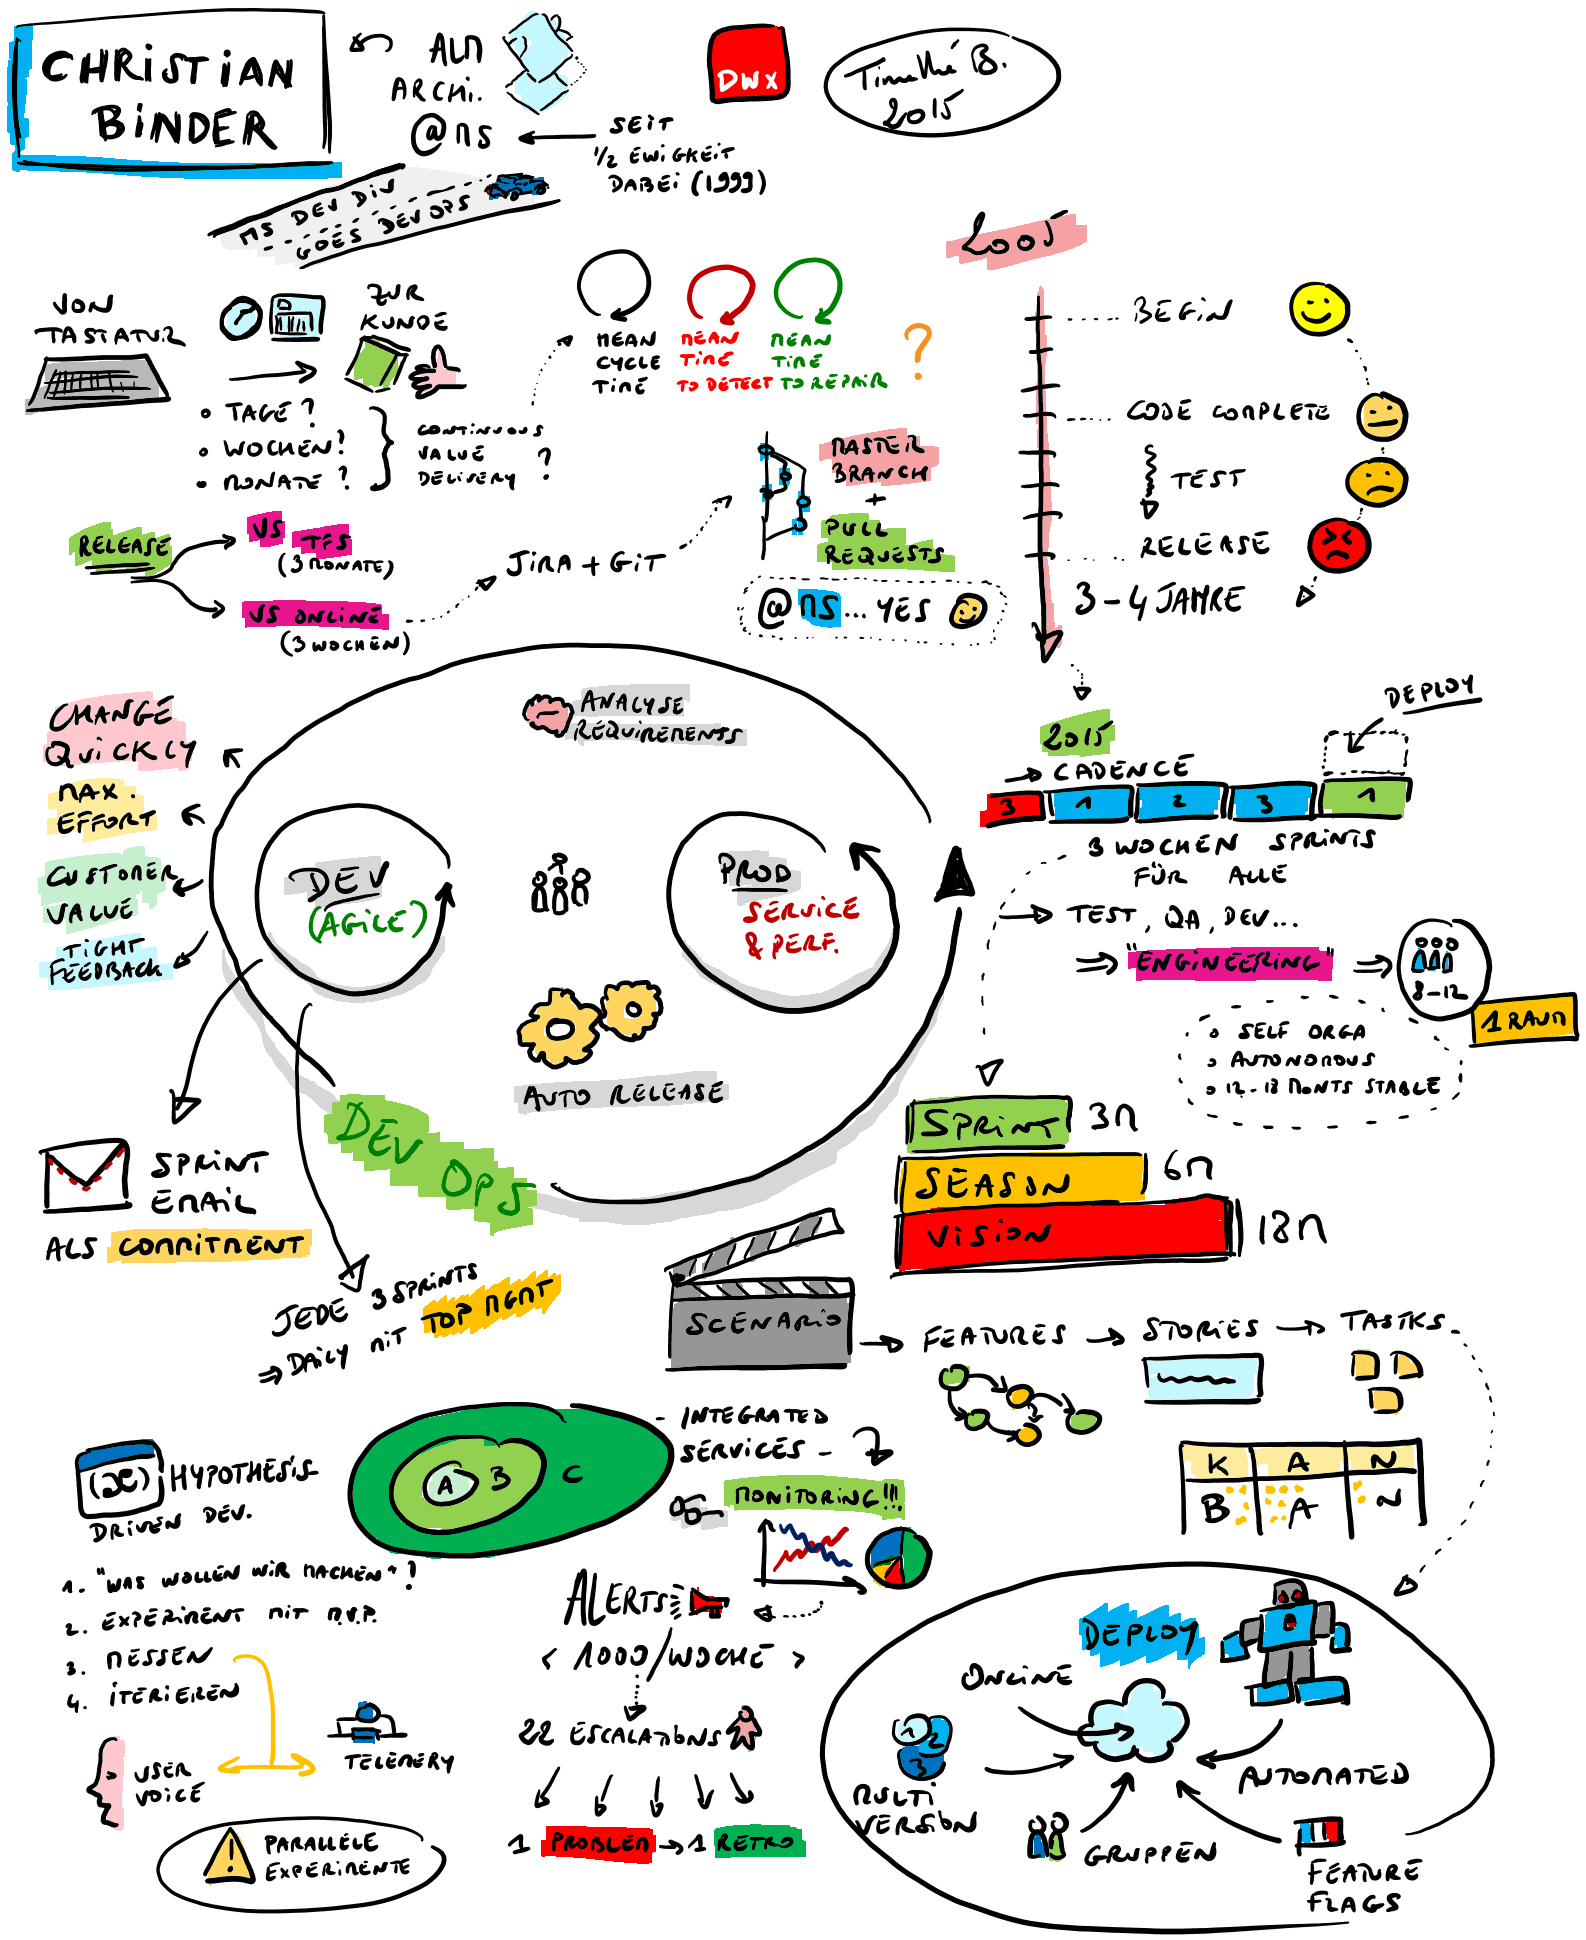 CHRISTIAN
BINDER
ALM
ARCHI.
@MS
SEIT
1/2 EWIGKEIT
DABEI (1999)
DWX
Timothé B.
2015
MS DEV DIV
GOES DEVOPS
VON
TASTATUR
ZUR
KUNDE
• TAGE?
• WOCHEN?
• MONATE?
CONTINUOUS
VALUE
DELIVERY ?
MEAN
CYCLE
TIME
MEAN
TIME
TO DETECT
MEAN
TIME
TO REPAIR
?
RELEASE
VS
TFS
(3 MONATE)
VS ONLINE
(3 WOCHEN)
JIRA + GIT
MASTER
BRANCH
+
PULL
REQUESTS
@MS... YES
2005
BEGIN
CODE COMPLETE
TEST
RELEASE
3-4 JAHRE
2015
CADENCE
DEPLOY
3 1 2 3 1
3 WOCHEN SPRINTS
FÜR ALLE
TEST, QA, DEV...
"ENGINEERING"
8-12
1 RAUM
• SELF ORGA
• AUTONOMOUS
• 12-18 MONTS STABLE
CHANGE
QUICKLY
MAX.
EFFORT
CUSTOMER
VALUE
TIGHT
FEEDBACK
ANALYSE
REQUIREMENTS
DEV
(AGILE)
PROD
SERVICE
& PERF.
AUTO RELEASE
DEV OPS
SPRINT 3M
SEASON 6M
VISION 18M
SPRINT
EMAIL
ALS COMMITMENT
JEDE 3 SPRINTS
⇒ DAILY MIT TOP MGMT
SCENARIO
FEATURES
STORIES
TASTKS
K A N
B A N
HYPOTHESIS
DRIVEN DEV.
1. "WAS WOLLEN WIR MACHEN"?
2. EXPERIMENT MIT M.V.P.
3. MESSEN
4. ITERIEREN
USER
VOICE
TELEMERY
PARALLELE
EXPERIMENTE
A B C
- INTEGRATED
SERVICES -
MONITORING!!!
ALERTS
< 1000/WOCHE >
22 ESCALATIONS
1 PROBLEM → 1 RETRO
DEPLOY
ONLINE
1 2 3
MULTI
VERSION
GRUPPEN
AUTOMATED
FEATURE
FLAGS